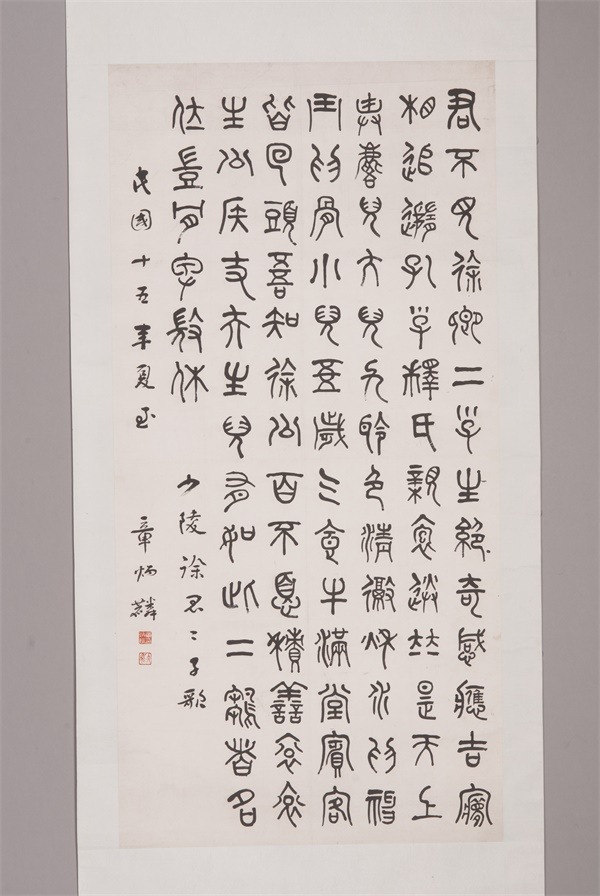 君不見徐卿二子生絕奇感應吉夢
相追隨孔子釋氏親抱送並是天上
麒麐兒大兒九齡色清澈秋水為神
玉為骨小兒五歲气食牛滿堂賓客
皆回頭吾知徐公百不憂積善袞袞
生公侯丈夫生兒有如此二雛者名
位豈肎卑微休
少陵徐君二子歌
民國十五年夏至
章炳麟